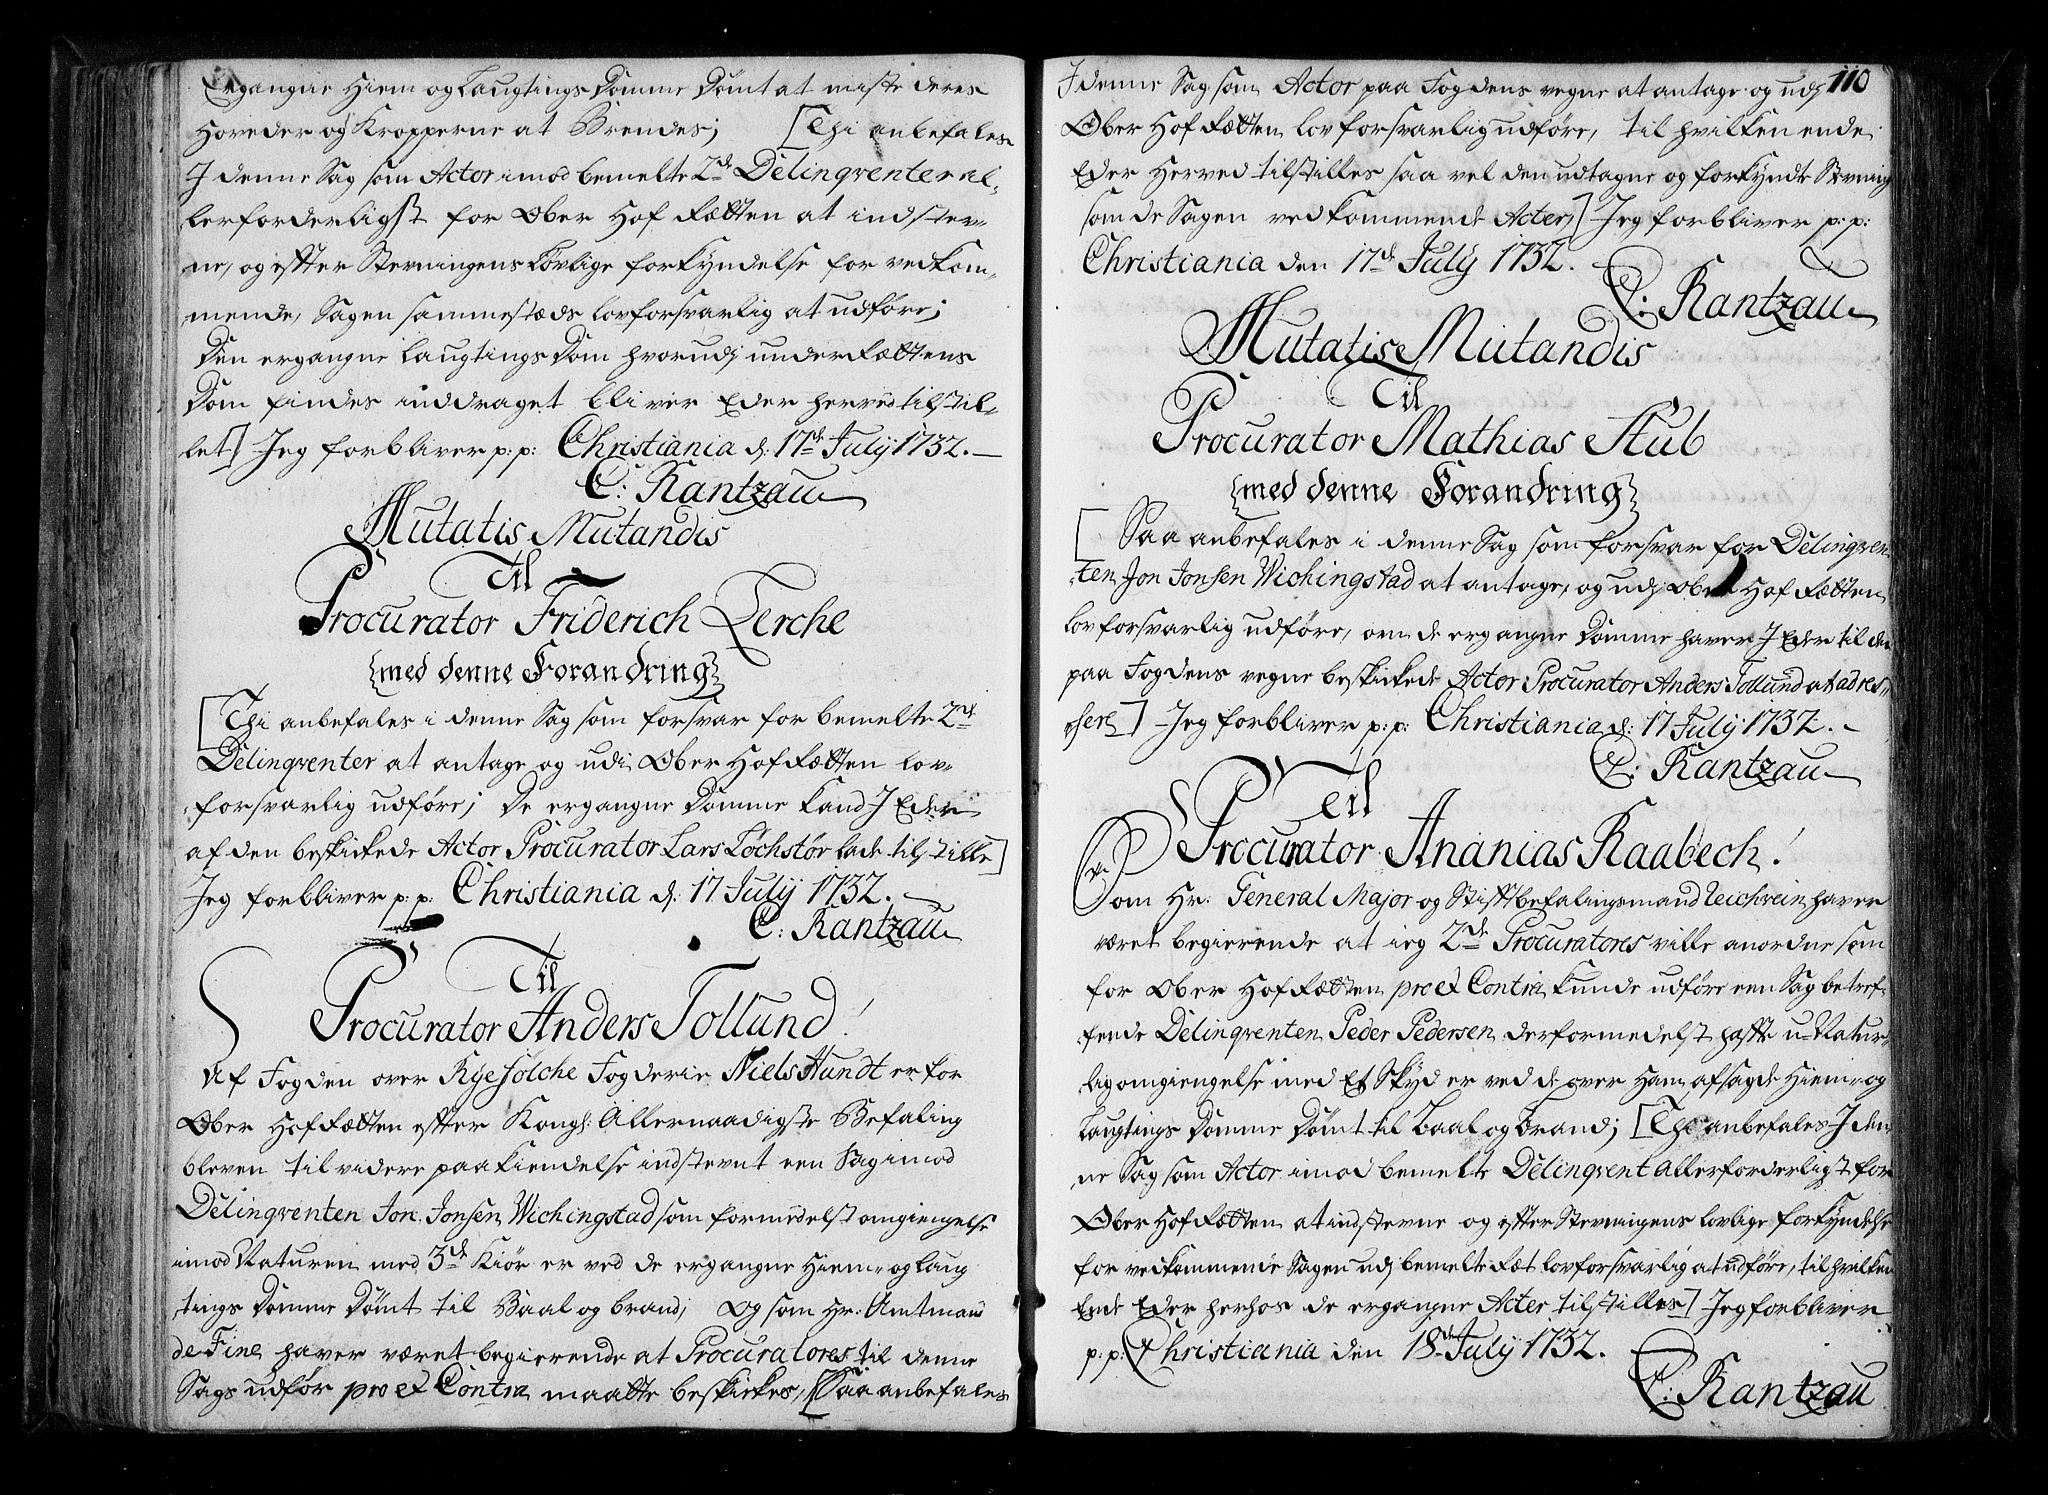 Ergangne Hiem og Laugtings Domme Dømt at miste deres
Hoveder og Kropperne at Brendes; [Thi anbefales
I denne Sag som Actor imod bemelte 2de Delinqventer al-
lerforderligst for Ober Hof Rætten at indstev-
ne, og efter Stevningens Lovlige forkyndelse for vedkom-
mende, Sagen sammestæds lovforsvarlig at udføre;
Den ergangne Laugtings Dom hvorudj underRættens
Dom findes inddraget bliver Eder herved tilstil-
let] Jeg forbliver p: p: Christiania d: 17de July 1732. —
C: Rantzau
Mutatis Mutandis
Til
Procurator Friderich Lerche
{med denne Forandring}
[Thi anbefales i denne Sag som forsvar for bemelte 2de
Delinqventer at antage og udi Ober Hof Rætten lov-
forsvarlig udføre; De ergangne Domme kand I Eder
af den beskickede Actor Procurator Lars Løchstør lade tilstille]
Jeg forbliver p: p: Christiania d: 17 July 1732. —
C: Rantzau
Til
Procurator Anders Tollund!
Af Fogden over Ryefölche Fogderie Niels Hundt er for
Ober Hof Rætten efter Kongl: Allernaadigste Befaling
bleven til videre paakiendelse indstevnt een Sag imod
Delinqventen Jon Jonsen Wichingstad som formedelst omgiengelse
imod Naturen med 3de Kiør er ved de ergangne Hiem- og Laug
tings Domme Dømt til Baal og brand; Og som Hr: Amtmand
de Fine haver været begierende at Procuratores til denne
Sags udför pro et Contra maatte beskickes, [Saa anbefales
110
I denne Sag som Actor paa Fogdens vegne at antage og udj
Ober Hof Rætten lovforsvarlig udføre, til hvilken ende
Eder Herved tilstilles saa vel den udtagne og forkyndte Stevning
som de Sagen vedkommende Acter] Jeg forbliver p: p:
Christiania den 17de July 1732.
C: Rantzau
Mutatis Mutandis
Til
Procurator Mathias Stub
{med denne Forandring}
[Saa anbefales i denne Sag som forsvar for Delinqven-
ten Jon Jonsen Wichingstad at antage, og udj Ober Hof Rætten
lovforsvarlig udføre, om de ergangne Domme haver I Eder til den
paa Fogdens vegne beskickede Actor Procurator Anders Tollund at adres-
sere] Jeg forbliver p: p: Christiania d: 17 July 1732. —
C: Rantzau
Til
Procurator Ananias Raabech!
Som Hr: General Major og Stiftbefalingsmand Reichwein haver
været begierende at ieg 2de Procuratores ville anordne som
for Ober Hof Rætten pro et Contra kunde udføre een Sag betref-
fende Delinqventen Peder Pedersen derformedelst hafte u-Natur-
lig omgiengelse med Et Skyd er ved de over Ham afsagde Hiem- og
Laugtings Domme Dømt til Baal og brand; [Thi anbefales I den-
ne Sag som Actor imod bemelte Delinqvent allerforderligst for
Ober Hof Rætten at indstevne og efter Stevningens lovlige forkyndelse
for vedkommende Sagen udj bemelte Ræt lovforsvarlig at udføre, til hvilken
Ende Eder herhos de ergangne Acter tilstilles] Jeg forbliver
p: p: Christiania den 18de July 1732.
C: Rantzau